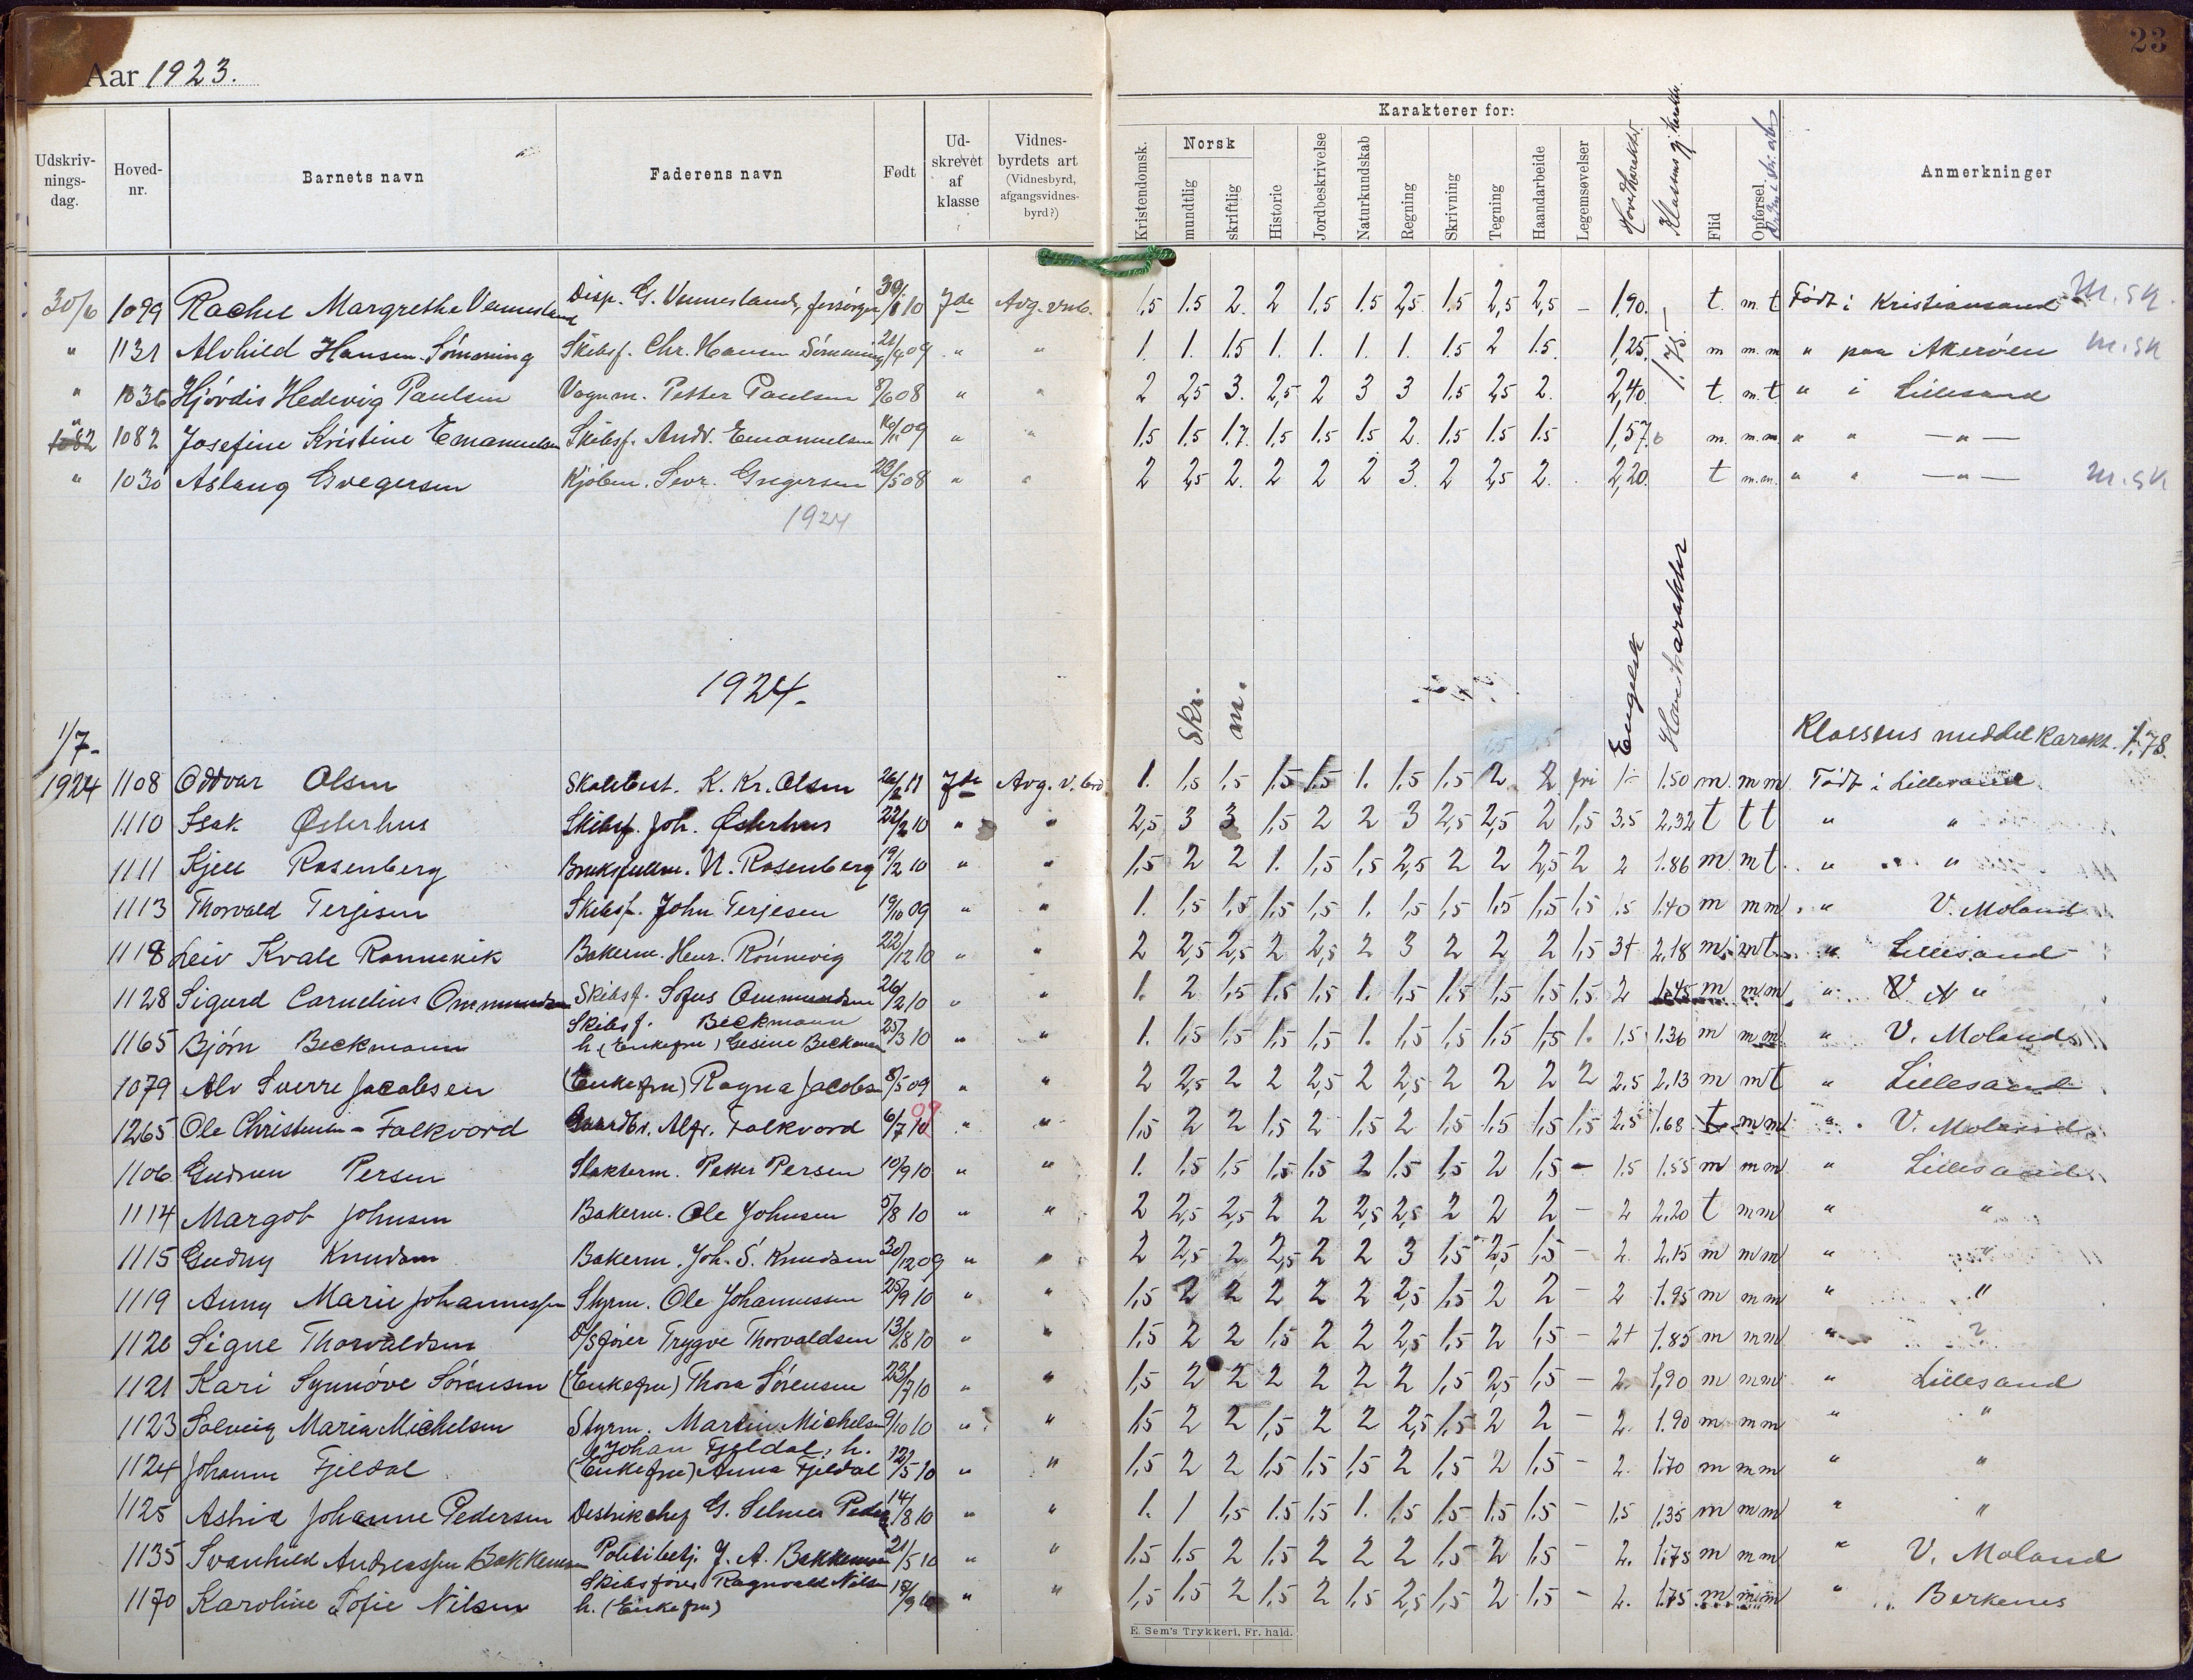 Aar 1923.
23
Udskriv-
nings-
dag.
Hoved-
nr.
Barnets navn
Faderens navn
Født
Ud-
skrevet
af
klasse
Vidnes-
byrdets art
(Vidnesbyrd,
afgangsvidnes-
byrd?)
Karakterer for:
Kristendomsk.
Norsk
mundtlig
skriftlig
Historie
Jordbeskrivelse
Naturkundskab
Regning
Skrivning
Tegning
Haandarbeide
Legemsøvelser
Hovedkarakter
Flid
Opførsel
Anmerkninger
30/6 1099 Rachel Margrethe Vennesland Disp. G. Vennesland, forsørger 30/1 10 7de Avg. vnb. 1,5 1.5 2. 2 1,5 1.5 2,5 1.5 2,5 2,5 – 1,90. t. m. t Født i Kristiansand M.sk.
" 1131 Alvhild Hansen Sømming Skibsf. Chr. Hansen Sømming 21/9 09 " " 1 1. 1.5 1. 1. 1. 1. 1.5 2 1.5. 1,25. 1.75 m m. m " paa Akerøen M.sk
" 1036 Hjørdis Hedevig Paulsen Vognm. Petter Paulsen 8/6 08 " " 2 2,5 3. 2,5 2 3 3 1.5 2,5 2. 2,40. t. m. t " i Lillesand
" 1082 1082 Josefine Kristine Emanuelsen Skibsf. Andr. Emanuelsen 16/11 09 " " 1.5 1.5 1.7. 1.5 1.5 1.5 2. 1.5 1.5 1.5 1,57. m. m. m. " " — " —
" 1030 Aslaug Gregersen Kjøbm. Sevr. Gregersen 23/5 08 " " 2 2,5 2. 2 2 2 3. 2 2,5 2. 2,20. t m. m. " " — " — M.sk
1924
1924.
Skr.
m.
Engelsk
Hovedkarakter
Klassens middelkarakt. 1.78.
1/7-
1924 1108 Oddvar Olsen Skolebest. K. Kr. Olsen 26/2 11 7de Avg. v. 1. 1,5 1,5 1,5 1.5 1. 1,5 1,5 2. 2 fri 1- 1.50 m m m Født i Lillesand.
1110 Isak Østerhus Skibsf. Joh. Østerhus 22/2 10 " " 2,5 3 3 1,5 2 2 3 2,5 2,5 2 1,5 3.5 2,32 t t t " "
1111 Kjell Rosenberg Bruksfullm. N. Rosenberg 19/2 10 " " 1,5 2 2 1. 1,5 1,5 2,5 2 2 2,5 2 2 1.86 m m t " "
1113 Thorvald Terjesen Skibsf. John Terjesen 19/10 09 " " 1. 1,5 1,5 1,5 1,5 1. 1,5 1,5 1,5 1,5 1,5 1.5 1.40 m m m " V. Moland
1118 Leiv Kvale Rønnevik Bakerm. Henr. Rønnevig 22/12 10 " " 2 2,5 2,5 2 2,5 2 3 2 2 2 1,5 3+ 2,18 m m t " Lillesand
1128 Sigurd Cornelius Ommundsen Skibsf. Sofus Ommundsen 26/2 10 " " 1. 2 1,5 1,5 1,5 1. 1,5 1,5 1,5 1,5 1,5 2 1.45 m m m "
1165 Bjørn Beckmann Skibsf. Beckmann
h. (Enkefru) Gesine Beckmann 25/3 10 " " 1. 1,5 1,5 1,5 1,5 1. 1,5 1,5 1,5 1,5 1. 1.5 1.36 m m m " V. Moland
1079 Alv Sverre Jacobsen (Enkefru) Ragna Jacobsen 8/5 09 " " 2 2,5 2 2 2,5 2 2,5 2 2 2 2 2.5 2.13 m m t " Lillesand
1265 Ole Christensen - Falkvord Gaardbr. Alfr. Falkvord 6/7 10 09 " " 1,5 2 2 1,5 2 1,5 2 1,5 1,5 1,5 1,5 2.5 1.68 t m m " V. Moland
1106 Gudrun Persen Slakterm. Peter Persen 10/9 10 " " 1. 1,5 1,5 1,5 1,5 2 1.5 1,5 2 1,5 – 1.5 1.55 m m m " Lillesand
1114 Margot Johnsen Bakerm. Ole Johnsen 5/8 10 " " 2 2,5 2,5 2 2 2,5 2,5 2 2 2 – 2 2.20 t m m " "
1115 Gudny Knudsen Bakerm. Joh. S. Knudsen 30/12 09 " " 2 2,5 2 2,5 2 2 3 1,5 2,5 1,5 – 2. 2.15 m m m " "
1119 Anny Marie Johannessen Styrm. Ole Johannessen 25/9 10 " " 1,5 2 2 2 2 2 2,5 1,5 2 2 – 2 1.95 m m m " "
1120 Signe Thorvaldsen D/Sfører Trygve Thorvaldsen 13/8 10 " " 1,5 2 2 1,5 2 2 2,5 1,5 2 1,5 – 2+ 1.85 m m m " ?
1121 Kari Synnøve Sørensen (Enkefru) Thora Sørensen 23/7 10 " " 1,5 2 2 2 2 2 2 1,5 2,5 1,5 – 2. 1,90 m m m " Lillesand
1123 Solveig Maria Michelsen Styrm. Martin Michelsen 9/10 10 " " 1,5 2 2 1,5 2 2 2,5 1,5 2 2 – 2. 1.90 m m m " "
1124 Johanne Fjeldal Johan Fjeldal, h.
(Enkefru) Anna Fjeldal 12/5 10 " " 1,5 2 2 1,5 1,5 1,5 2 1,5 2 1,5 – 2. 1.70 m m m " "
1125 Astrid Johanne Pedersen G. Selmer Pedersen 14/8 10 " " 1. 1 1,5 1.5 1,5 1. 1,5 1,5 1,5 1,5 – 1.5 1.35 m m m " "
1135 Svanhild Andreassen Bakkemoen Politibetj. J. A. Bakkemoen 21/5 10 " " 1,5 1,5 2 1,5 2 2 2 1,5 2 1,5 – 2. 1.75 m m m " V. Moland
1170 Karoline Sofie Nilsen Skibsfører Ragnvald Nilsen
h. (Enkefru) 18/9 10 " " 1,5 1.5 2 1,5 2 1,5 2,5 1,5 2 1,5 – 2. 1.75 m m m " Berkenes
E. Sem's Trykkeri, Fr. hald.